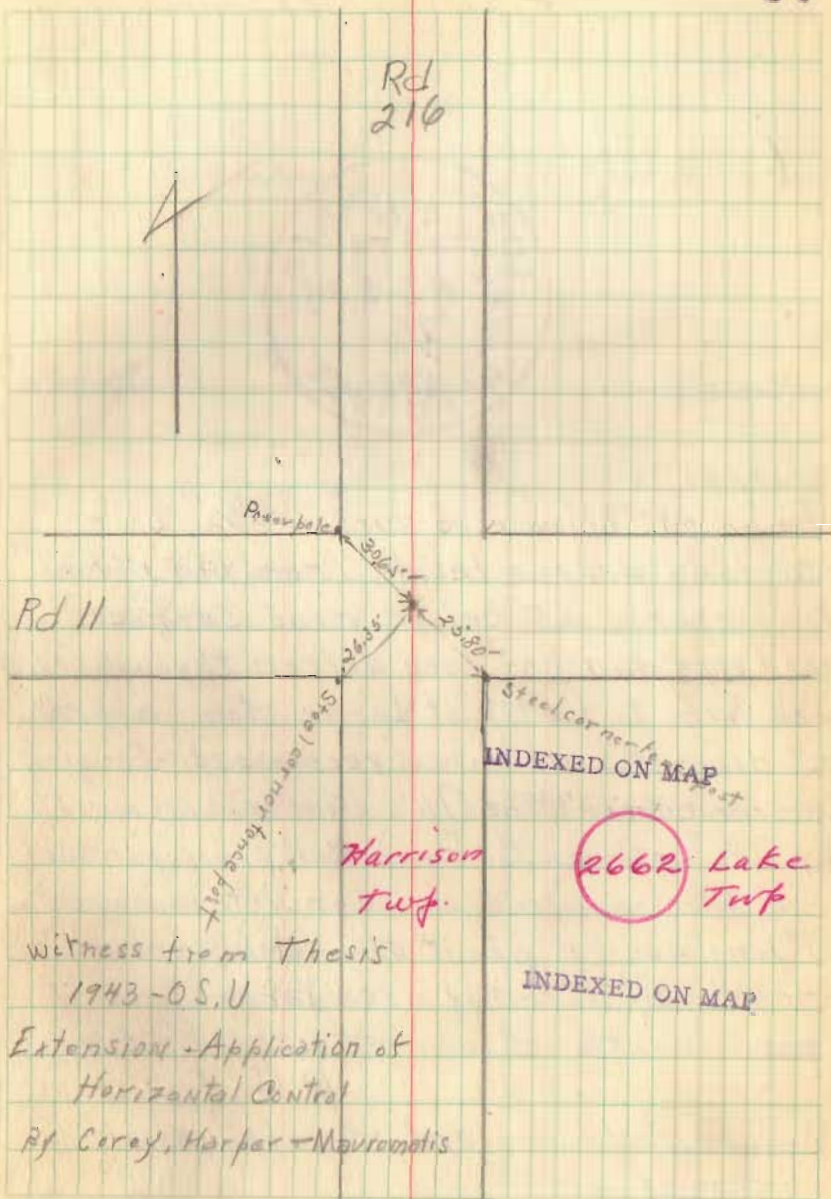 Rd
216
Power pole
30.65'
Rd 11
26.35'
25.80'
Steel corner fence post
Steel corner fence post
INDEXED ON MAP
Harrison
Twp.
2662 Lake
Twp
INDEXED ON MAP
witness from Thesis
1943 - O.S.U
Extension - Application of
Horizontal Control
By Corey, Harper - Mavromatis